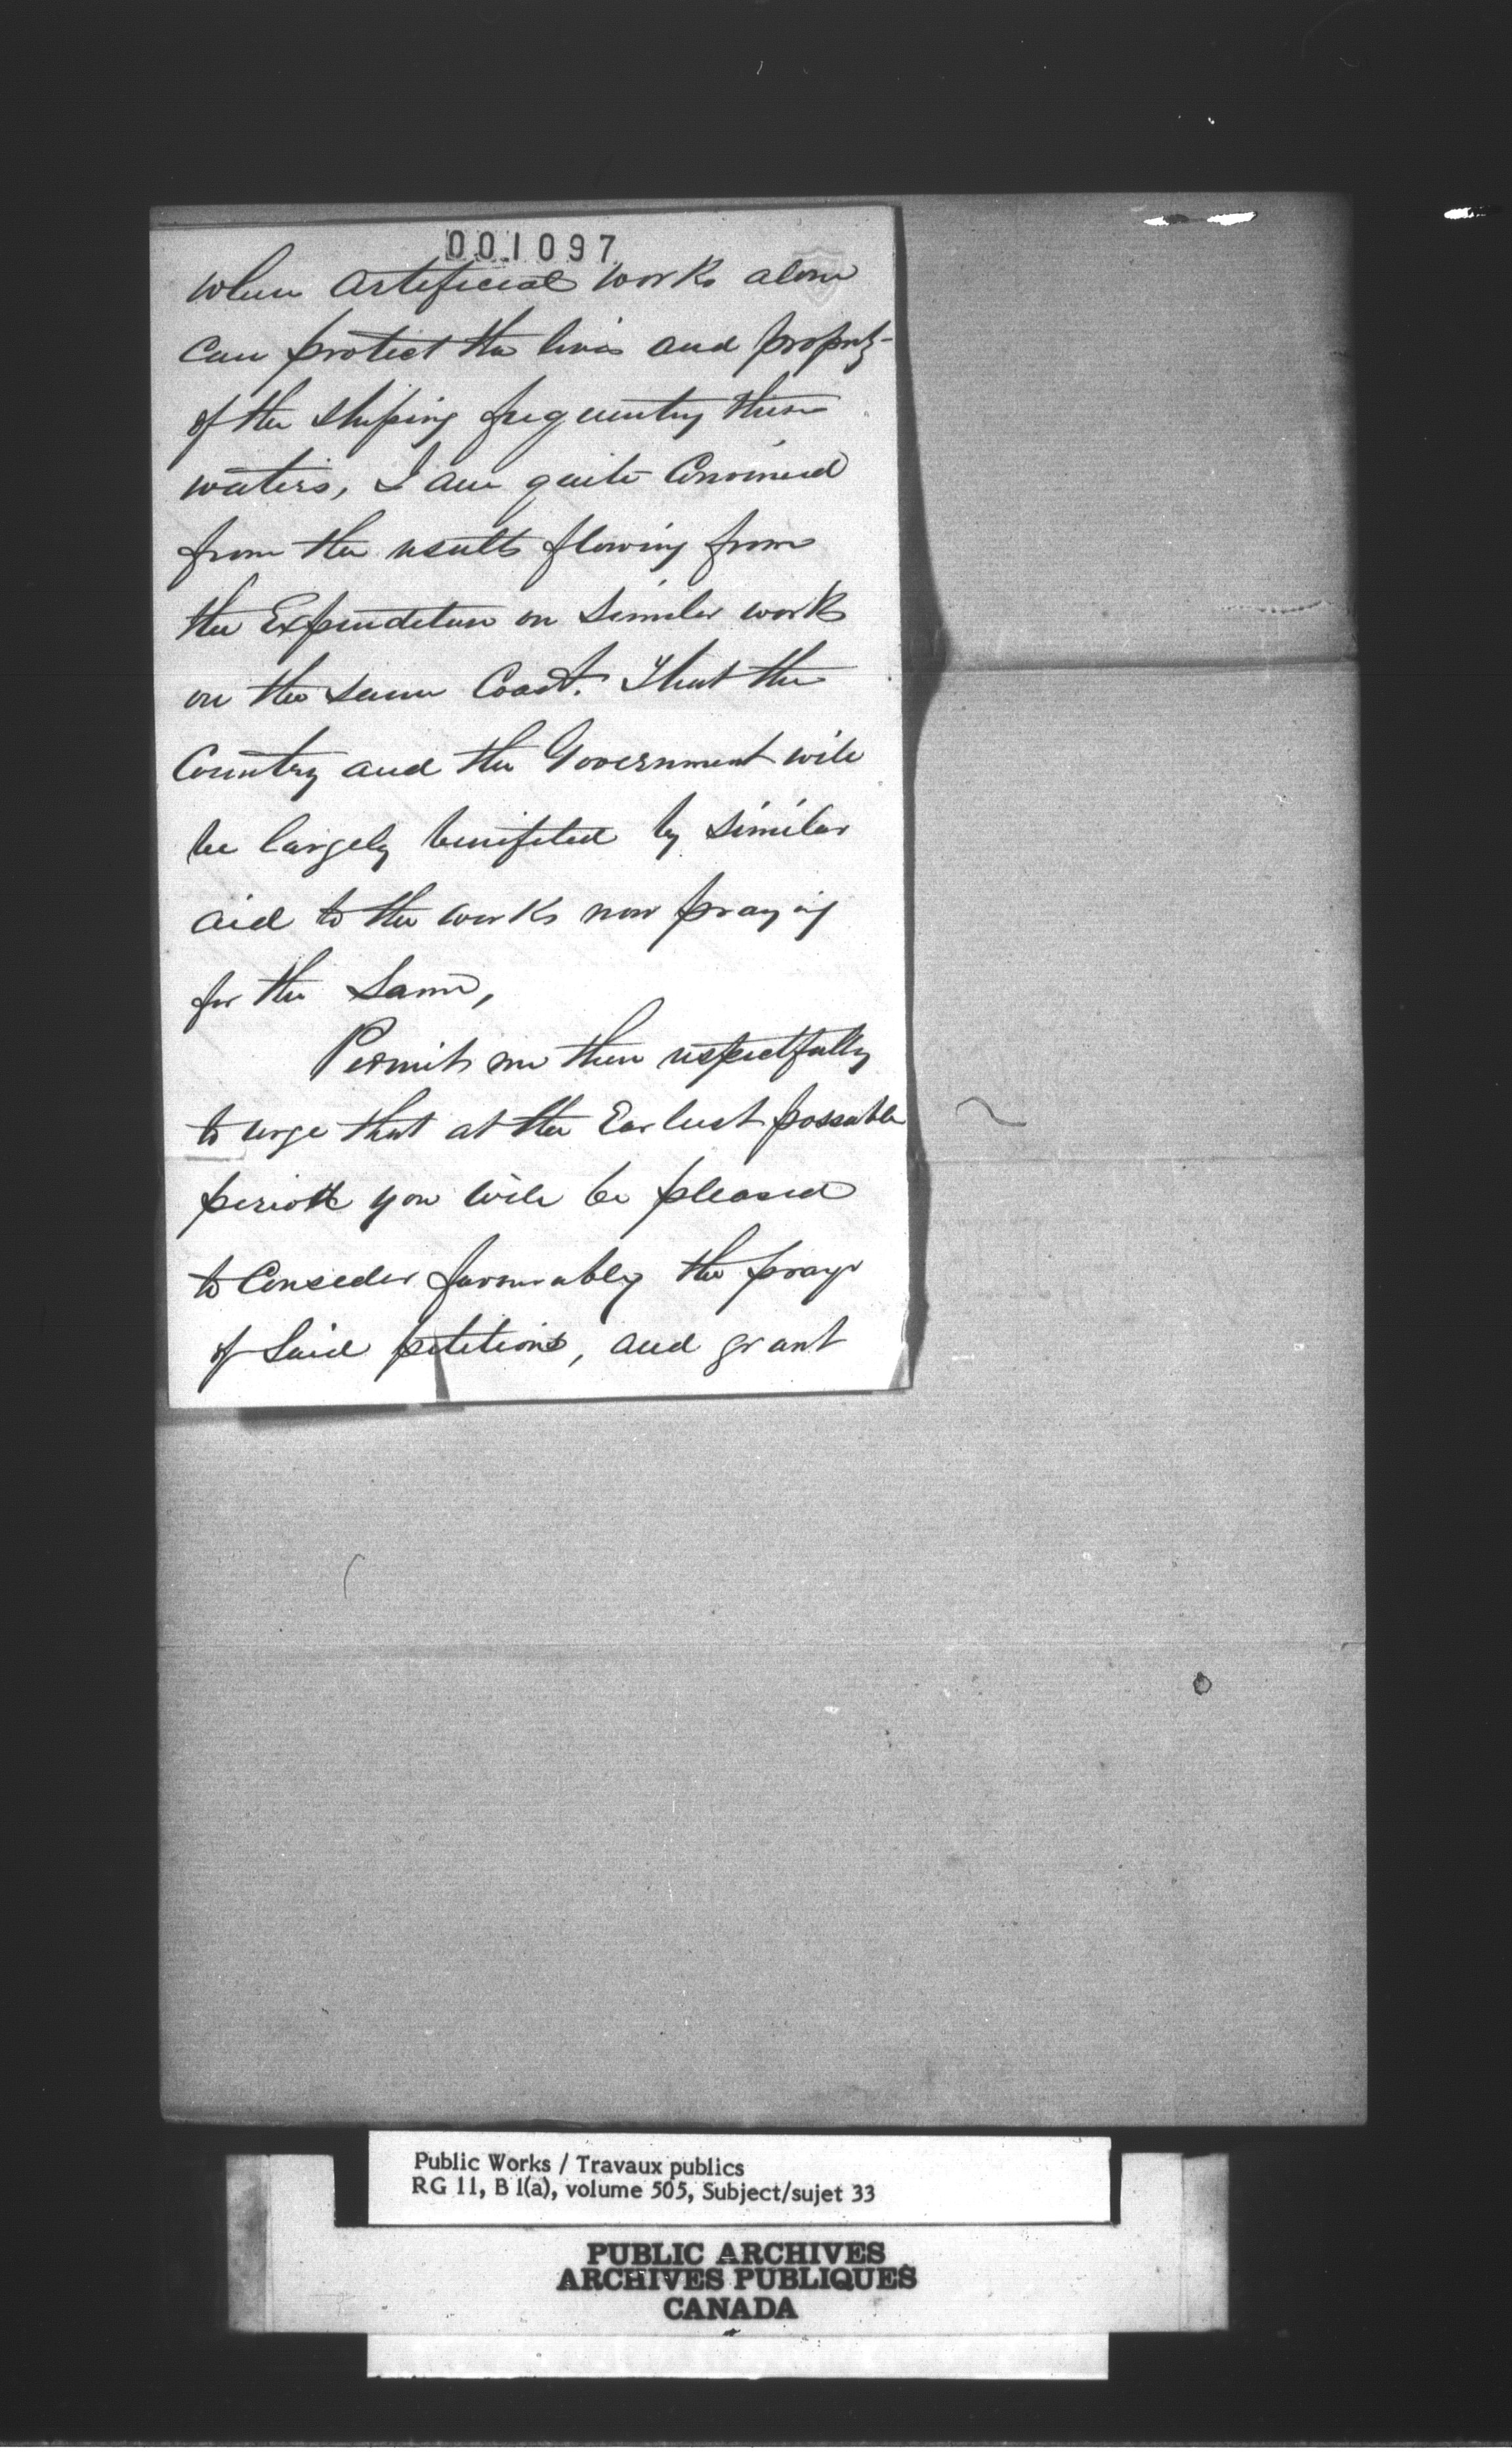 001097
when artificial works alone
can protect the lives and property
of the shiping frequenting these
waters, I am quite Convinced
from the results flowing from
the Expenditure on similar works
on the same Coast. That the
Country and the Government will
be largely benifited by similar
aid to the works now praying
for the same,
Permit me then respectfully
to urge that at the Earliest possable
period you will be pleased
to Consider favourably the prayr
of said petitions, and grant
Public Works / Travaux publics
RG 11, B 1(a), volume 505, Subject/sujet 33
PUBLIC ARCHIVES
ARCHIVES PUBLIQUES
CANADA